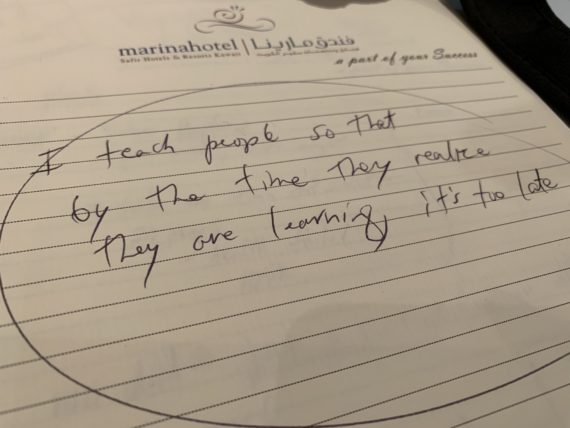 marinahotel | فندق مارينا
Safir Hotels & Resorts Kuwait
a part of your Success
I teach people so that
by the time they realize
they are learning, it's too late